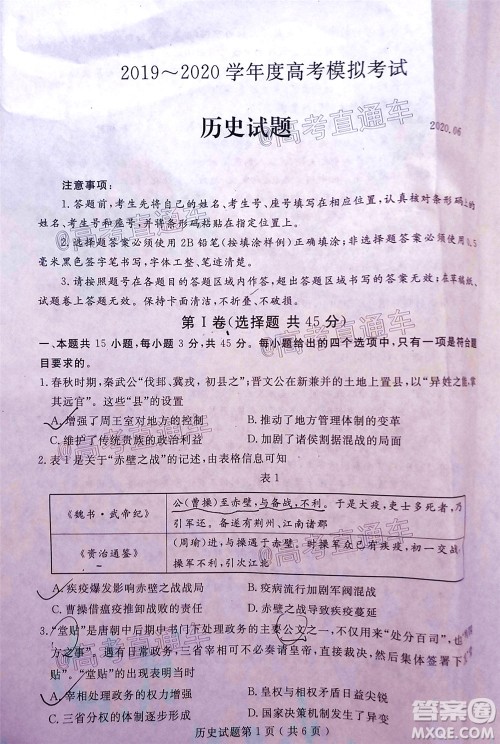 2019～2020 学年度高考模拟考试
历史试题
2020.06
@高考直通车
注意事项：
1. 答题前，考生先将自己的姓名、考生号、座号填写在相应位置，认真核对条形码上的
姓名、考生号和座号，并将条形码粘贴在指定位置上。
2. 选择题答案必须使用 2B 铅笔（按填涂样例）正确填涂；非选择题答案必须使用 0.5
毫米黑色签字笔书写，字体工整、笔迹清楚。
3. 请按照题号在各题目的答题区域内作答，超出答题区域书写的答案无效；在草稿纸、
试题卷上答题无效。保持卡面清洁，不折叠、不破损。
第 Ⅰ 卷（选择题 共 45 分）
一、本题共 15 小题，每小题 3 分，共 45 分。每小题给出的四个选项中，只有一项是符合题
目要求的。
1. 春秋时期，秦武公“伐邽、冀戎，初县之”；晋文公在新兼并的土地上置县，以“异姓之能，
掌其远官”。这些“县”的设置
A. 增强了周王室对地方的控制 B. 推动了地方管理体制的变革
C. 维护了传统贵族的政治利益 D. 加剧了诸侯割据混战的局面
2. 表 1 是关于“赤壁之战”的记述，由表格信息可知
表 1
《魏书·武帝纪》 公（曹操）至赤壁，与备战，不利。于是大疫，吏士多死者，乃
引军还。备遂有荆州、江南诸郡
《资治通鉴》 （周瑜）进，与操遇于赤壁。时操军众已有疾疫，初一交战，操
军不利，引次江北
A. 疾疫爆发影响赤壁之战战局 B. 疫病流行加剧军阀混战
C. 曹操借瘟疫推卸战败的责任 D. 赤壁之战导致疾疫蔓延
3. “堂贴”是唐朝中后期中书门下处理政务的主要公文之一，不仅用来“处分百司”，“四
方之事”。遇有日常政务，三省宰相不必奏请皇帝，直接用“堂贴”进行指挥处理。
“堂贴”的出现表明当时
A. 宰相处理政务的权力增大 B. 皇权与相权矛盾尖锐
C. 三省分权的体制仍在强化 D. 中枢权力体系的完善
历史试题第 1 页（共 6 页）
答案圈
MXQE.COM